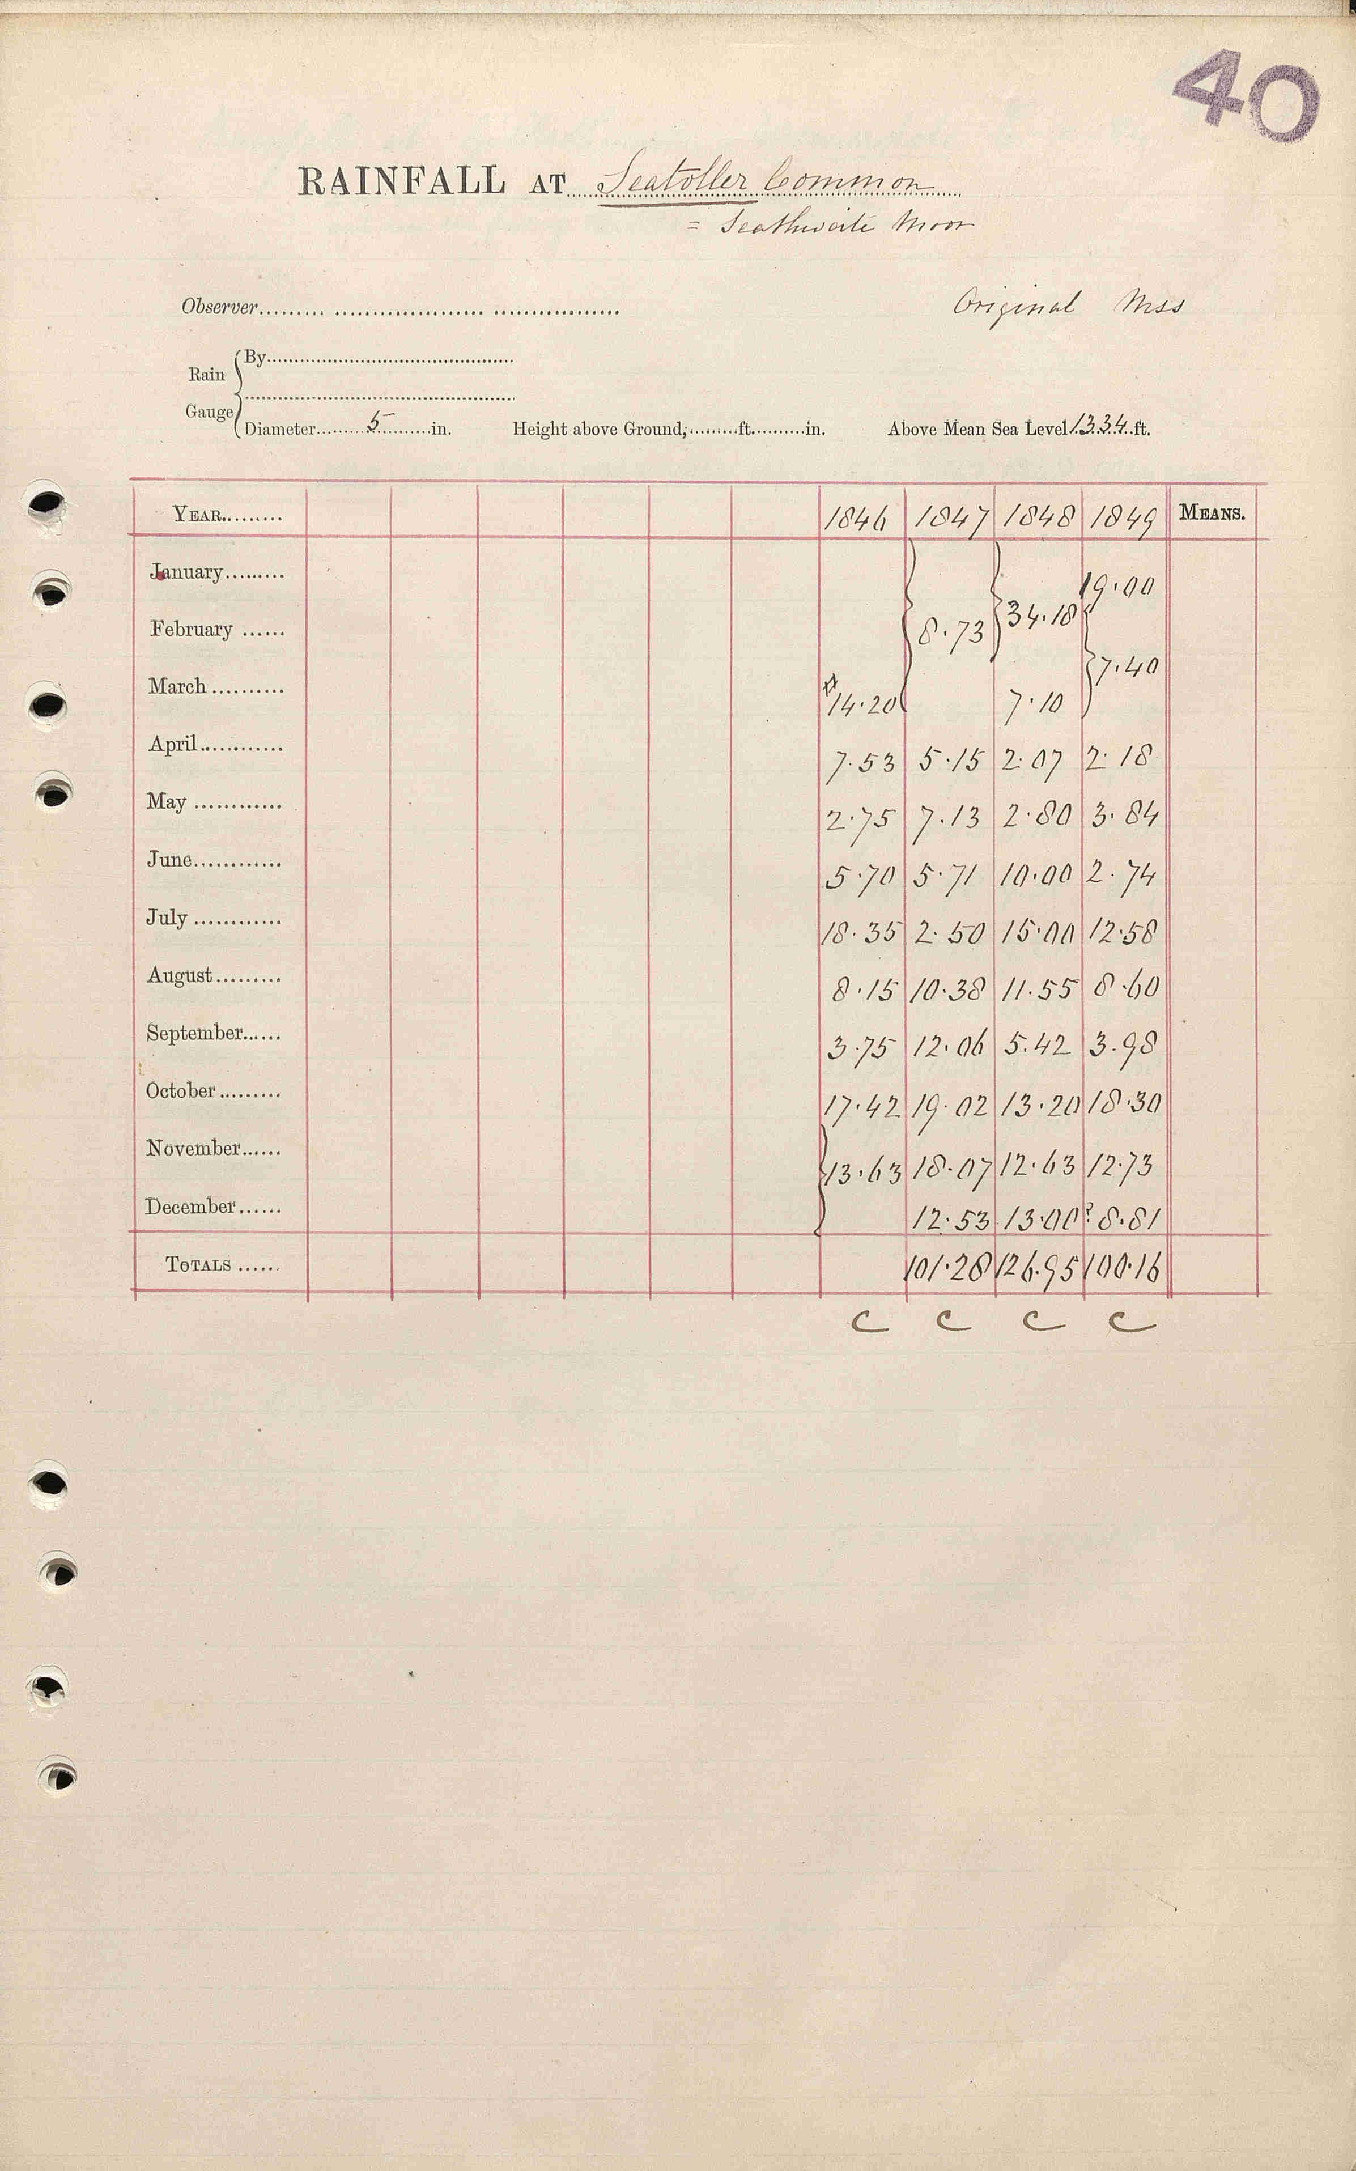 40
RAINFALL AT Seatoller Common
= Seathwaite Moor
Observer Original Mss
Rain Gauge { By
Diameter 5 in. Height above Ground, ft. in. Above Mean Sea Level 1334 ft.
YEAR 1846 1847 1848 1849 MEANS.
January 19.00
February 8.73 34.18
March ☆14.20 7.10 7.40
April 7.53 5.15 2.07 2.18
May 2.75 7.13 2.80 3.84
June 5.70 5.71 10.00 2.74
July 18.35 2.50 15.00 12.58
August 8.15 10.38 11.55 8.60
September 3.75 12.06 5.42 3.98
October 17.42 19.02 13.20 18.30
November 13.63 18.07 12.63 12.73
December 12.53 13.00? 8.81
TOTALS 101.28 126.95 100.16
C C C C